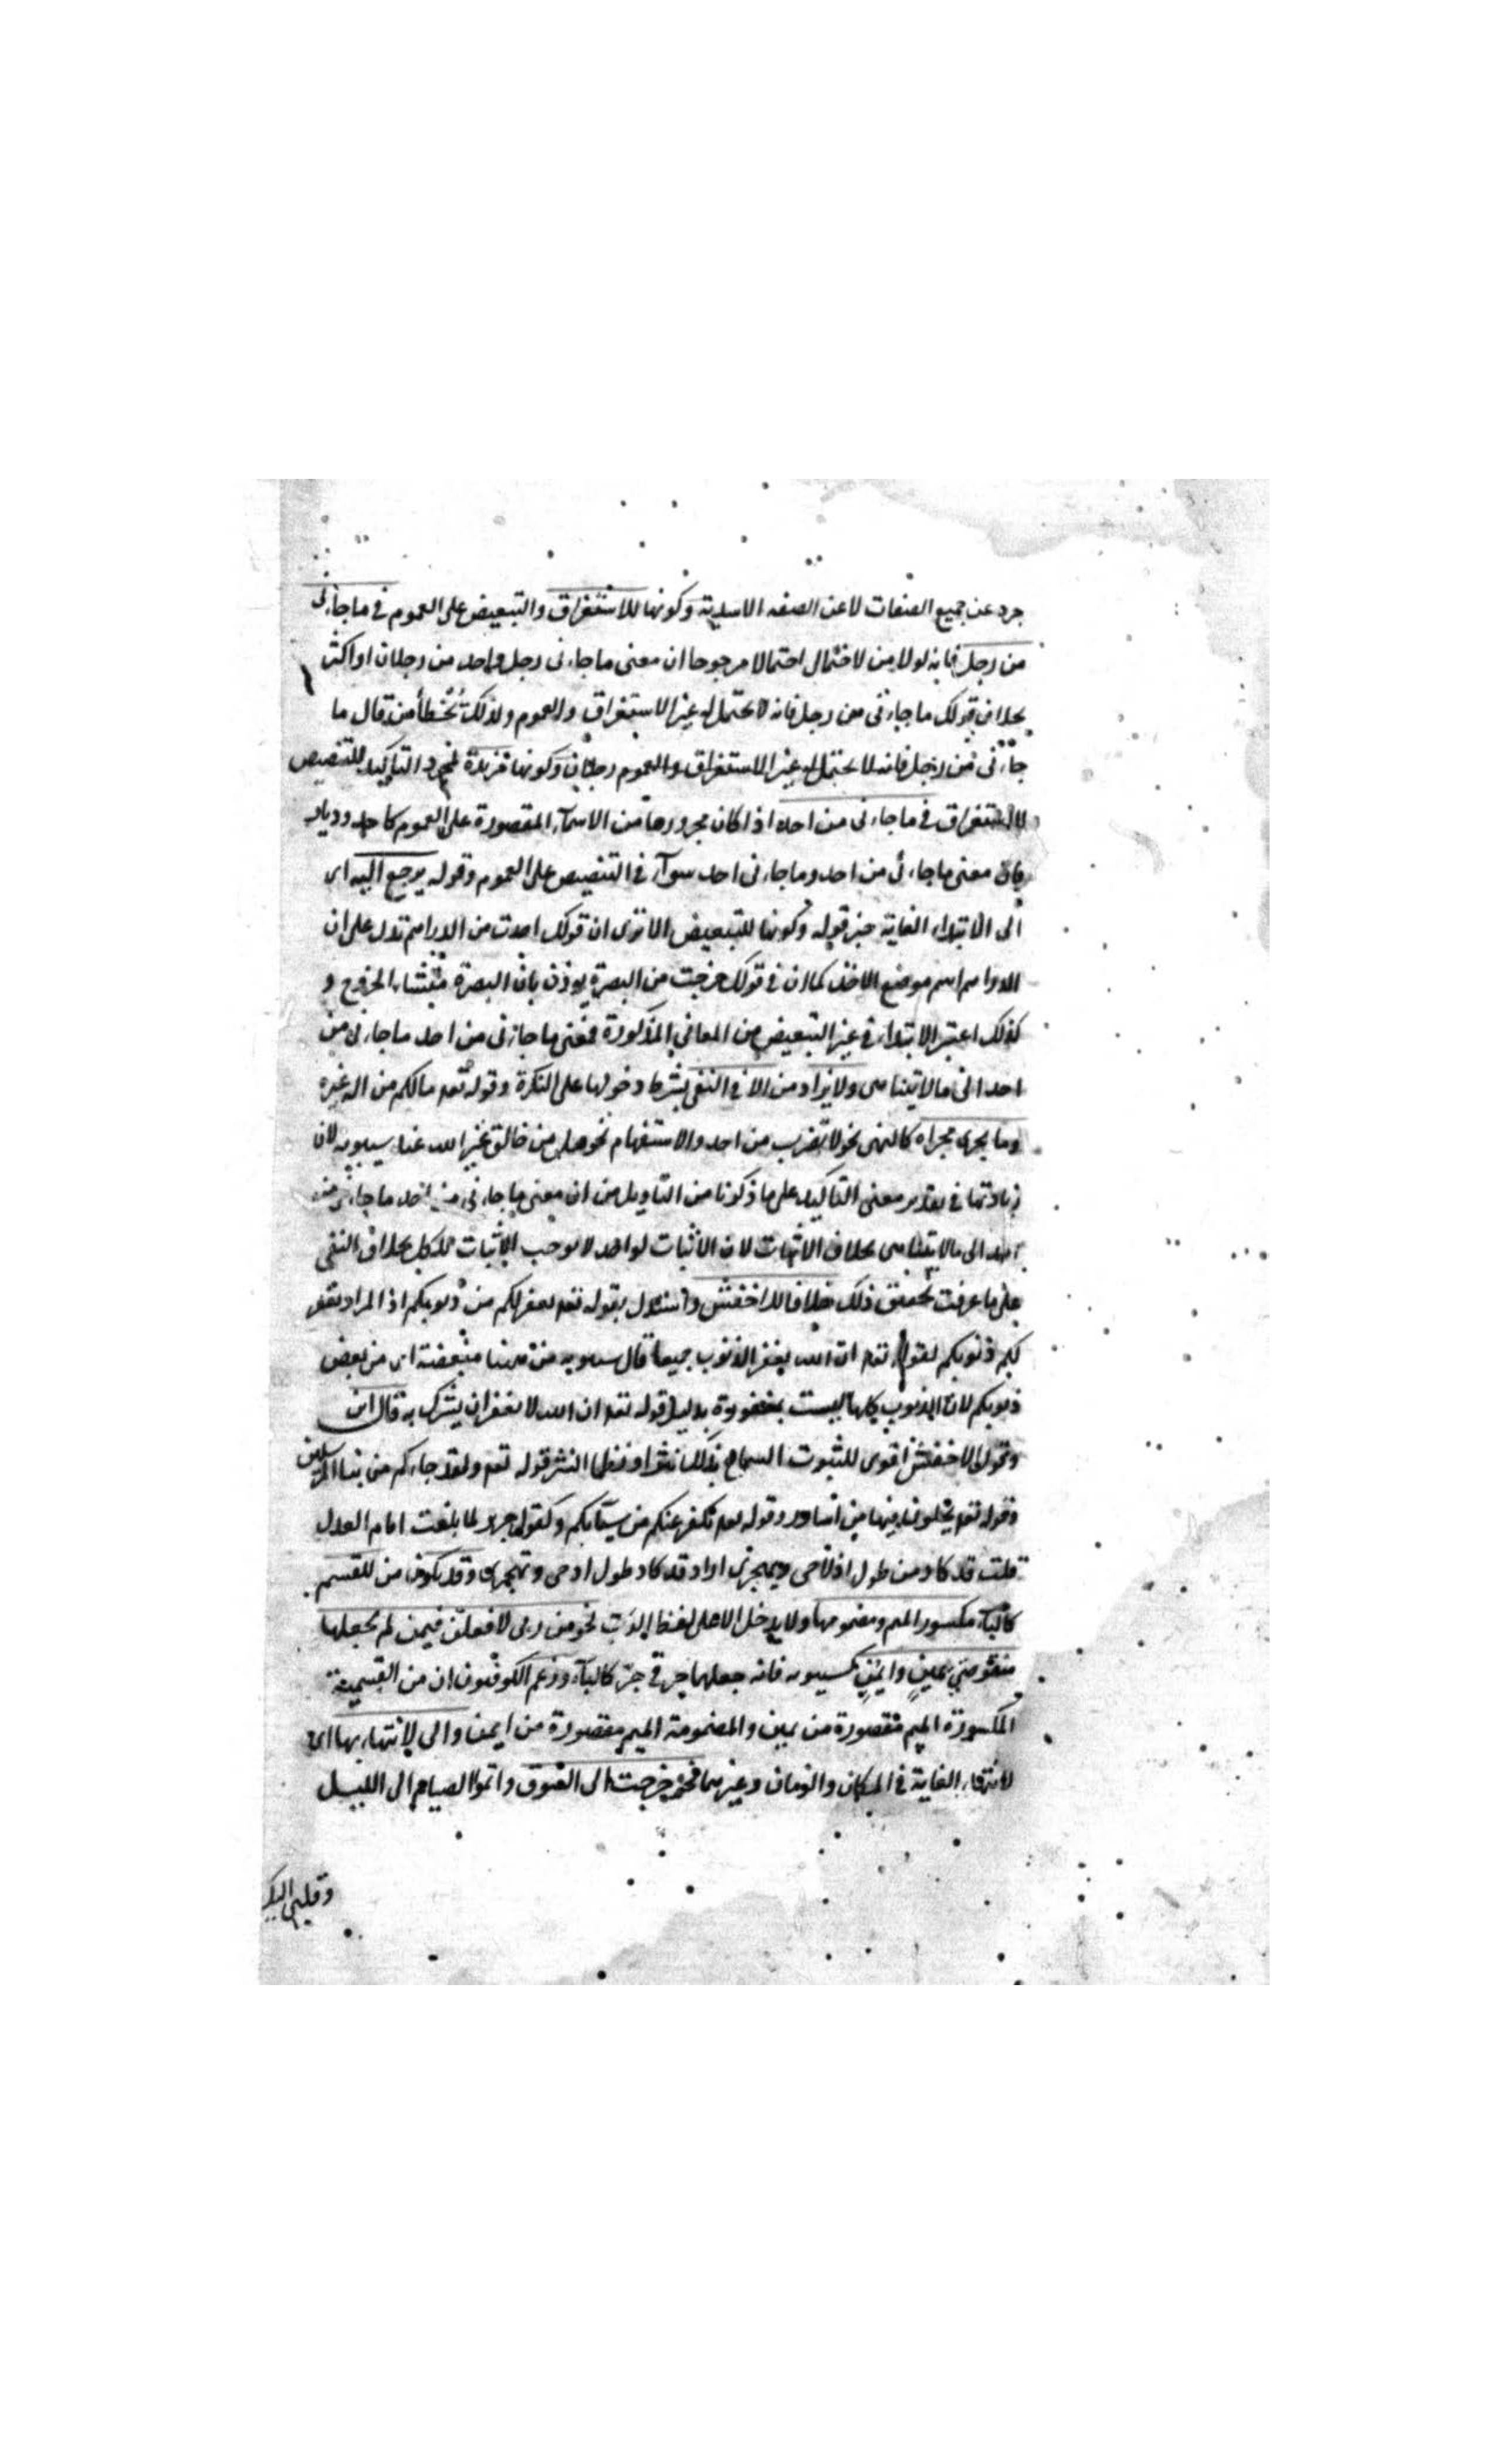 جرد عن جميع الصفات لا عن الصفه الاسدية وكونها للاستغراق والتبعيض على العموم فى ما جاءنى
من رجل فانه لولا من لاحتمال احتمالا مرجوحا ان معنى ما جاءنى رجل واحد من رجلان او اكثر
بخلاف قولك ما جاءنى من رجل فانه لا يحتمل غير الاستغراق والعموم ولذلك يُخَطأ من قال ما
جاءنى من رجل فانه لا يحتمل غير الاستغراق والعموم رجلان وكونها مزيدة لمجرد التاكيد للتنصيص
للاستغراق فى ما جاءنى من احد اذا كان مجرورها من الاسمآء المقصورة على العموم كاحد وديار
فان معنى ما جاءنى من احد وما جاءنى احد سوآء فى التنصيص على العموم وقوله يرجع اليه اى
الى الابتداء الغاية خبر قوله وكونها للتبعيض الا ترى ان قولك اخذت من الدراهم تدل على ان
الدراهم اسم موضع الاخذ كما ان فى قولك خرجت من البصرة يوذن بان البصرة منشاء الخروج و
كذلك اعتبر الابتداء فى غير التبعيض من المعانى المذكورة فمعنى ما جاءنى من احد ما جاءنى من
احد الى ما لا يتناهى ولا يزاد من الا فى النفى بشرط دخولها على النكرة وقوله تعه مالكم من اله غيره
وما يجرى مجراه كالنهى نحو لا تضرب من احد والاستفهام نحو هل من خالق غير الله عند سيبويه لان
زيادتها فى تقدير معنى التاكيد على ما ذكرنا من التاويل من ان معنى ما جاءنى من احد ما جاءنى من
احد الى ما لا يتناهى بخلاف الاثبات لان الاثبات لواحد لا يوجب الاثبات للكل بخلاف النفى
على ما عرفت تحقيق ذلك خلافا للاخفش واستدل بقوله تعه يغفر لكم من ذنوبكم اذ المراد يغفر
لكم ذنوبكم لقوله تعه ان الله يغفر الذنوب جميعا قال سيبويه من ههنا متبعضة اى من بعض
ذنوبكم لان الذنوب كلها ليست بمغفورة بدليل قوله تعه ان الله لا يغفر ان يشرك به قال ابن
وقول الاخفش اقوى للثبوت السماع بذلك نثرا ونظما النثر قوله تعه ولقد جاءكم من نبا المرسلين
وقوله تعه يحلون فيها من اساور وقوله تعه نكفر عنكم من سيّآتكم وكقول جرير لما بلغت امام العدل
قلت قد كاد من طول ادلاجى وتهجيرى اراد قد كاد طول ادجى وتهجيرى وقد يكون من للقسم
كالبآء مكسور الميم ومضمومها ولا يدخل الا على لفظ الرَبّ نحو من ربى لافعلن فيمن لم يجعلها
منقوصتى يمينٍ وايْمُنٍ كسيبويه فانه جعلها حرف جرّ كالبآء وزعم الكوفيون ان من القسمية
المكسورة الميم مقصورة من يمين والمضمومة الميم مقصورة من ايمن والى لانتهاء بها اى
لانتهاء الغاية فى المكان والزمان وغيرهما نحو خرجت الى السوق واتموا الصيام الى الليل
وقلبى اليك